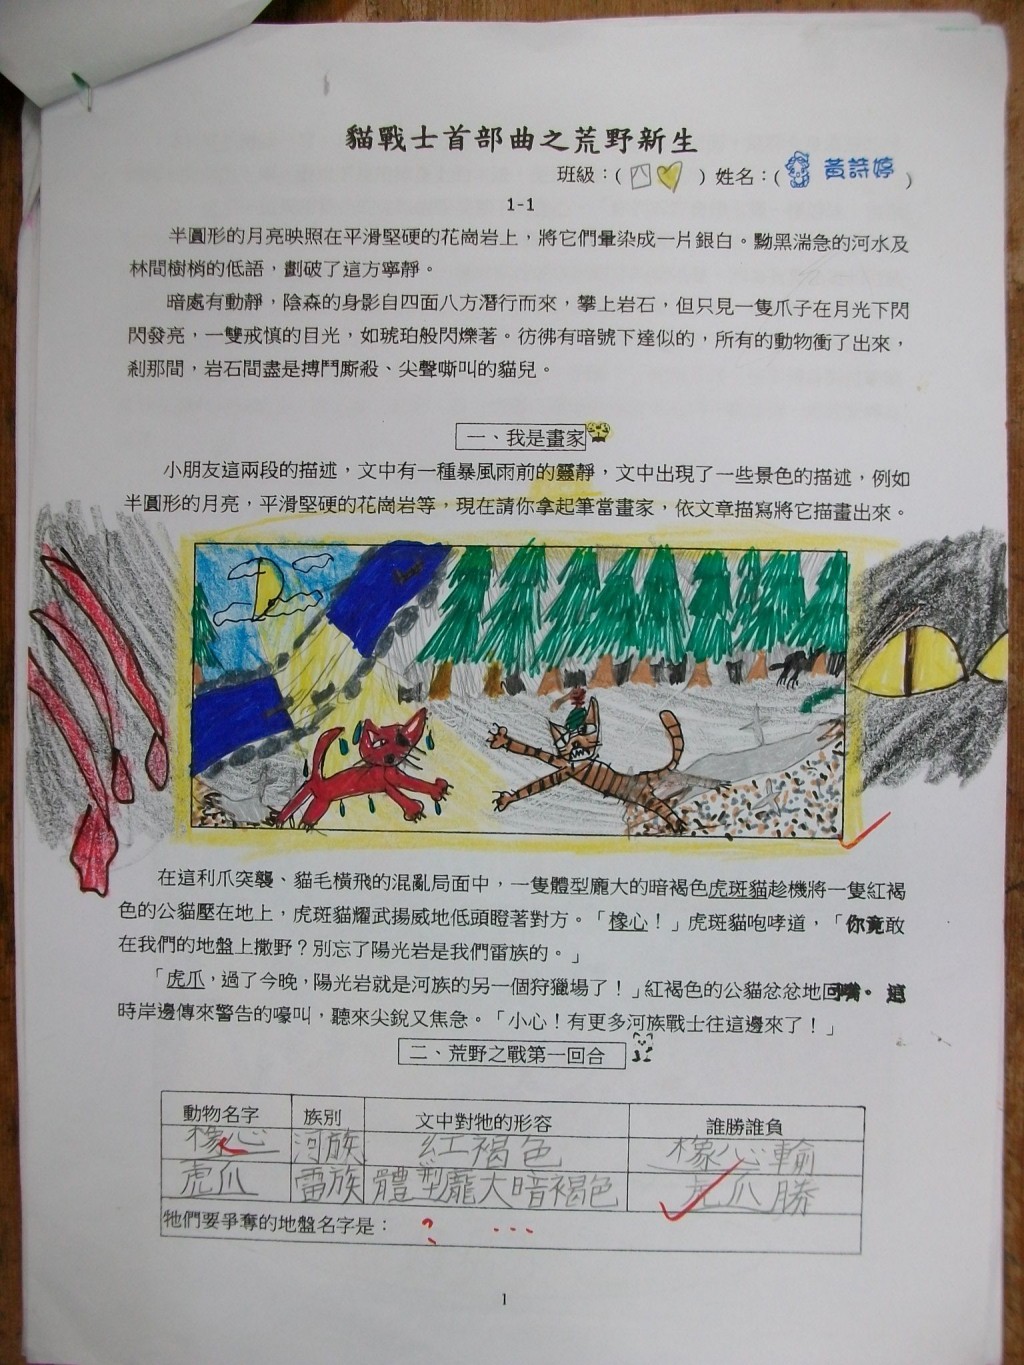 貓戰士首部曲之荒野新生
班級：(四　) 姓名：( 黃詩婷 )
1-1
半圓形的月亮映照在平滑堅硬的花崗岩上，將它們暈染成一片銀白。黝黑湍急的河水及
林間樹梢的低語，劃破了這方寧靜。
暗處有動靜，陰森的身影自四面八方潛行而來，攀上岩石，但只見一隻爪子在月光下閃
閃發亮，一雙戒慎的目光，如琥珀般閃爍著。彷彿有暗號下達似的，所有的動物衝了出來，
剎那間，岩石間盡是搏鬥廝殺、尖聲嘶叫的貓兒。
一、我是畫家
小朋友這兩段的描述，文中有一種暴風雨前的靈靜，文中出現了一些景色的描述，例如
半圓形的月亮，平滑堅硬的花崗岩等，現在請你拿起筆當畫家，依文章描寫將它描畫出來。
在這利爪突襲、貓毛橫飛的混亂局面中，一隻體型龐大的暗褐色虎斑貓趁機將一隻紅褐
色的公貓壓在地上，虎斑貓耀武揚威地低頭瞪著對方。「橡心！」虎斑貓咆哮道，「你竟敢
在我們的地盤上撒野？別忘了陽光岩是我們雷族的。」
「虎爪，過了今晚，陽光岩就是河族的另一個狩獵場了！」紅褐色的公貓忿忿地回嘴。這
時岸邊傳來警告的嚎叫，聽來尖銳又焦急。「小心！有更多河族戰士往這邊來了！」
二、荒野之戰第一回合
動物名字 族別 文中對牠的形容 誰勝誰負
橡心 河族 紅褐色 橡心輸
虎爪 雷族 體型龐大暗褐色 虎爪勝
牠們要爭奪的地盤名字是： ? ...
1